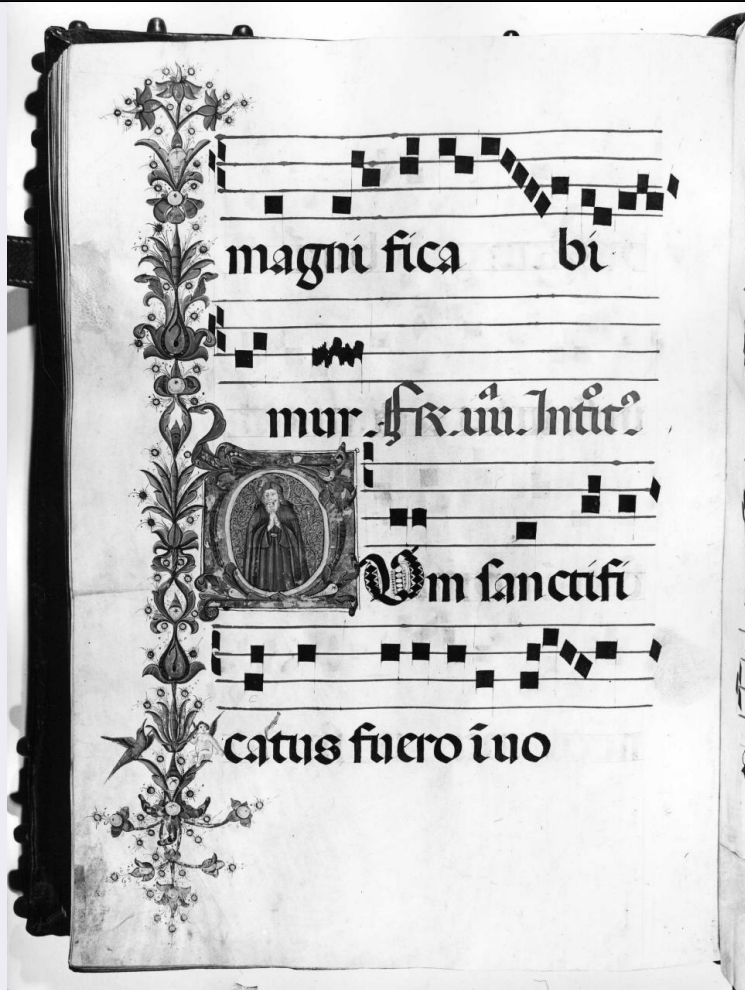 magni fica bi
mur. Fr. iiii. Introit9
QUm sanctifi
catus fuero ī uo